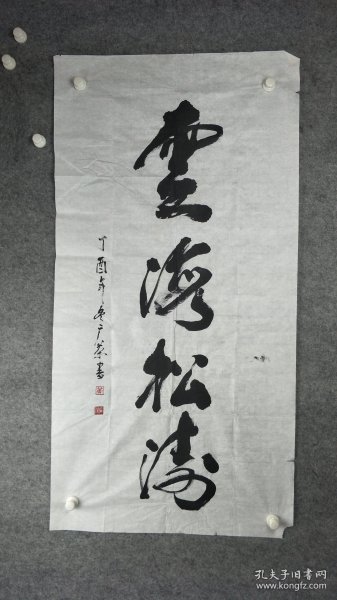 雲海松濤
丁酉年冬广荣書
孔夫子旧书网
kongfz.com